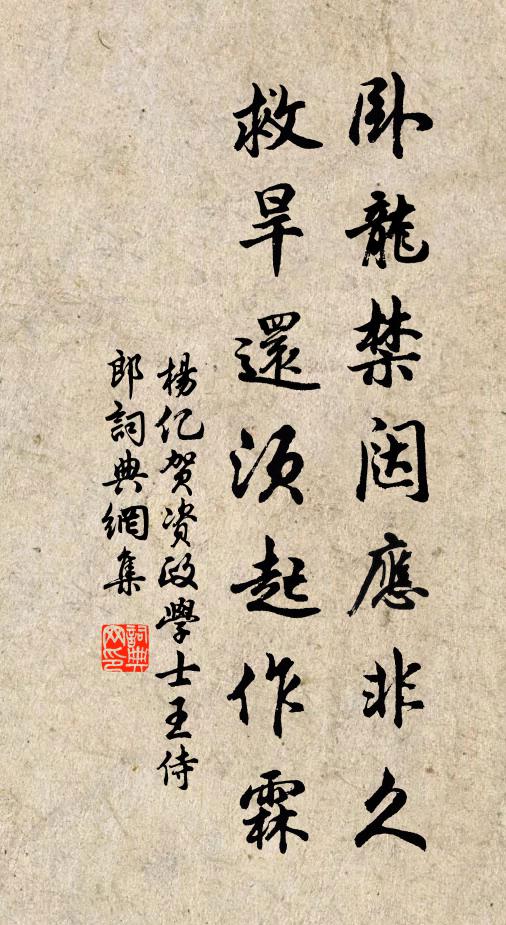 卧龍禁闼應非久
救旱還須起作霖
楊亿贺资政學士王侍
郎詞典網集
詞典
网印